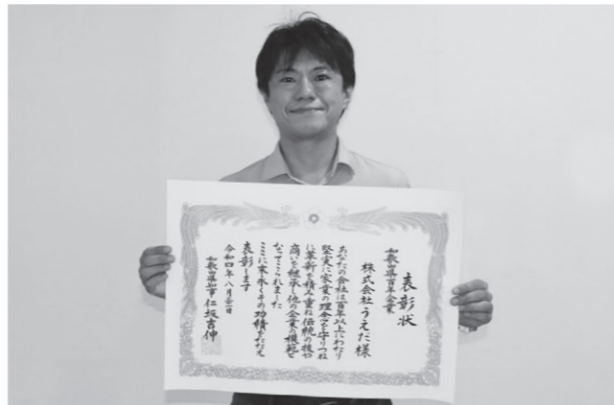 表彰状
和歌山県百年企業
株式会社うえだ様
あなたの会社は百年以上にわたり
堅実に家業の理念を守りつつ
に革新を積み重ね伝統の技や
商いを継承し他の企業の模範と
なってこられました
ここに末永くその功績をたたえ
表彰します
令和四年八月三日
和歌山県知事 仁坂吉伸